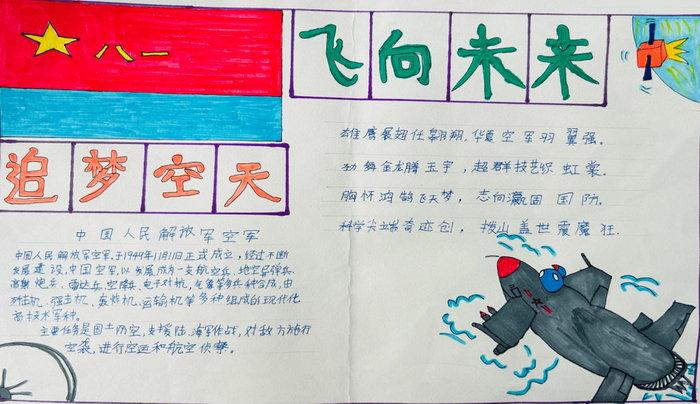 八一
飞向未来
追梦空天
雄鹰展翅任翱翔,华夏空军羽翼强。
劲舞金龙腾玉宇,超群技艺织虹裳。
胸怀鸿鹄飞天梦,志向瀛固国防。
科学尖端奇迹创,拨山盖世震魔狂.
中国人民解放军空军
中国人民解放军空军,于1949年11月11日正式成立,经过不断
发展建设,中国空军,以发展成为一支航空兵、地空导弹兵、
高射炮兵、雷达兵、空降兵、电子对抗,气象等多兵种合成,由
歼击机、强击机、轰炸机、运输机等多种组成的现代化
高技术军种。
主要任务是国土防空,支援陆、海军作战,对敌方施行
空袭,进行空运和航空侦察。